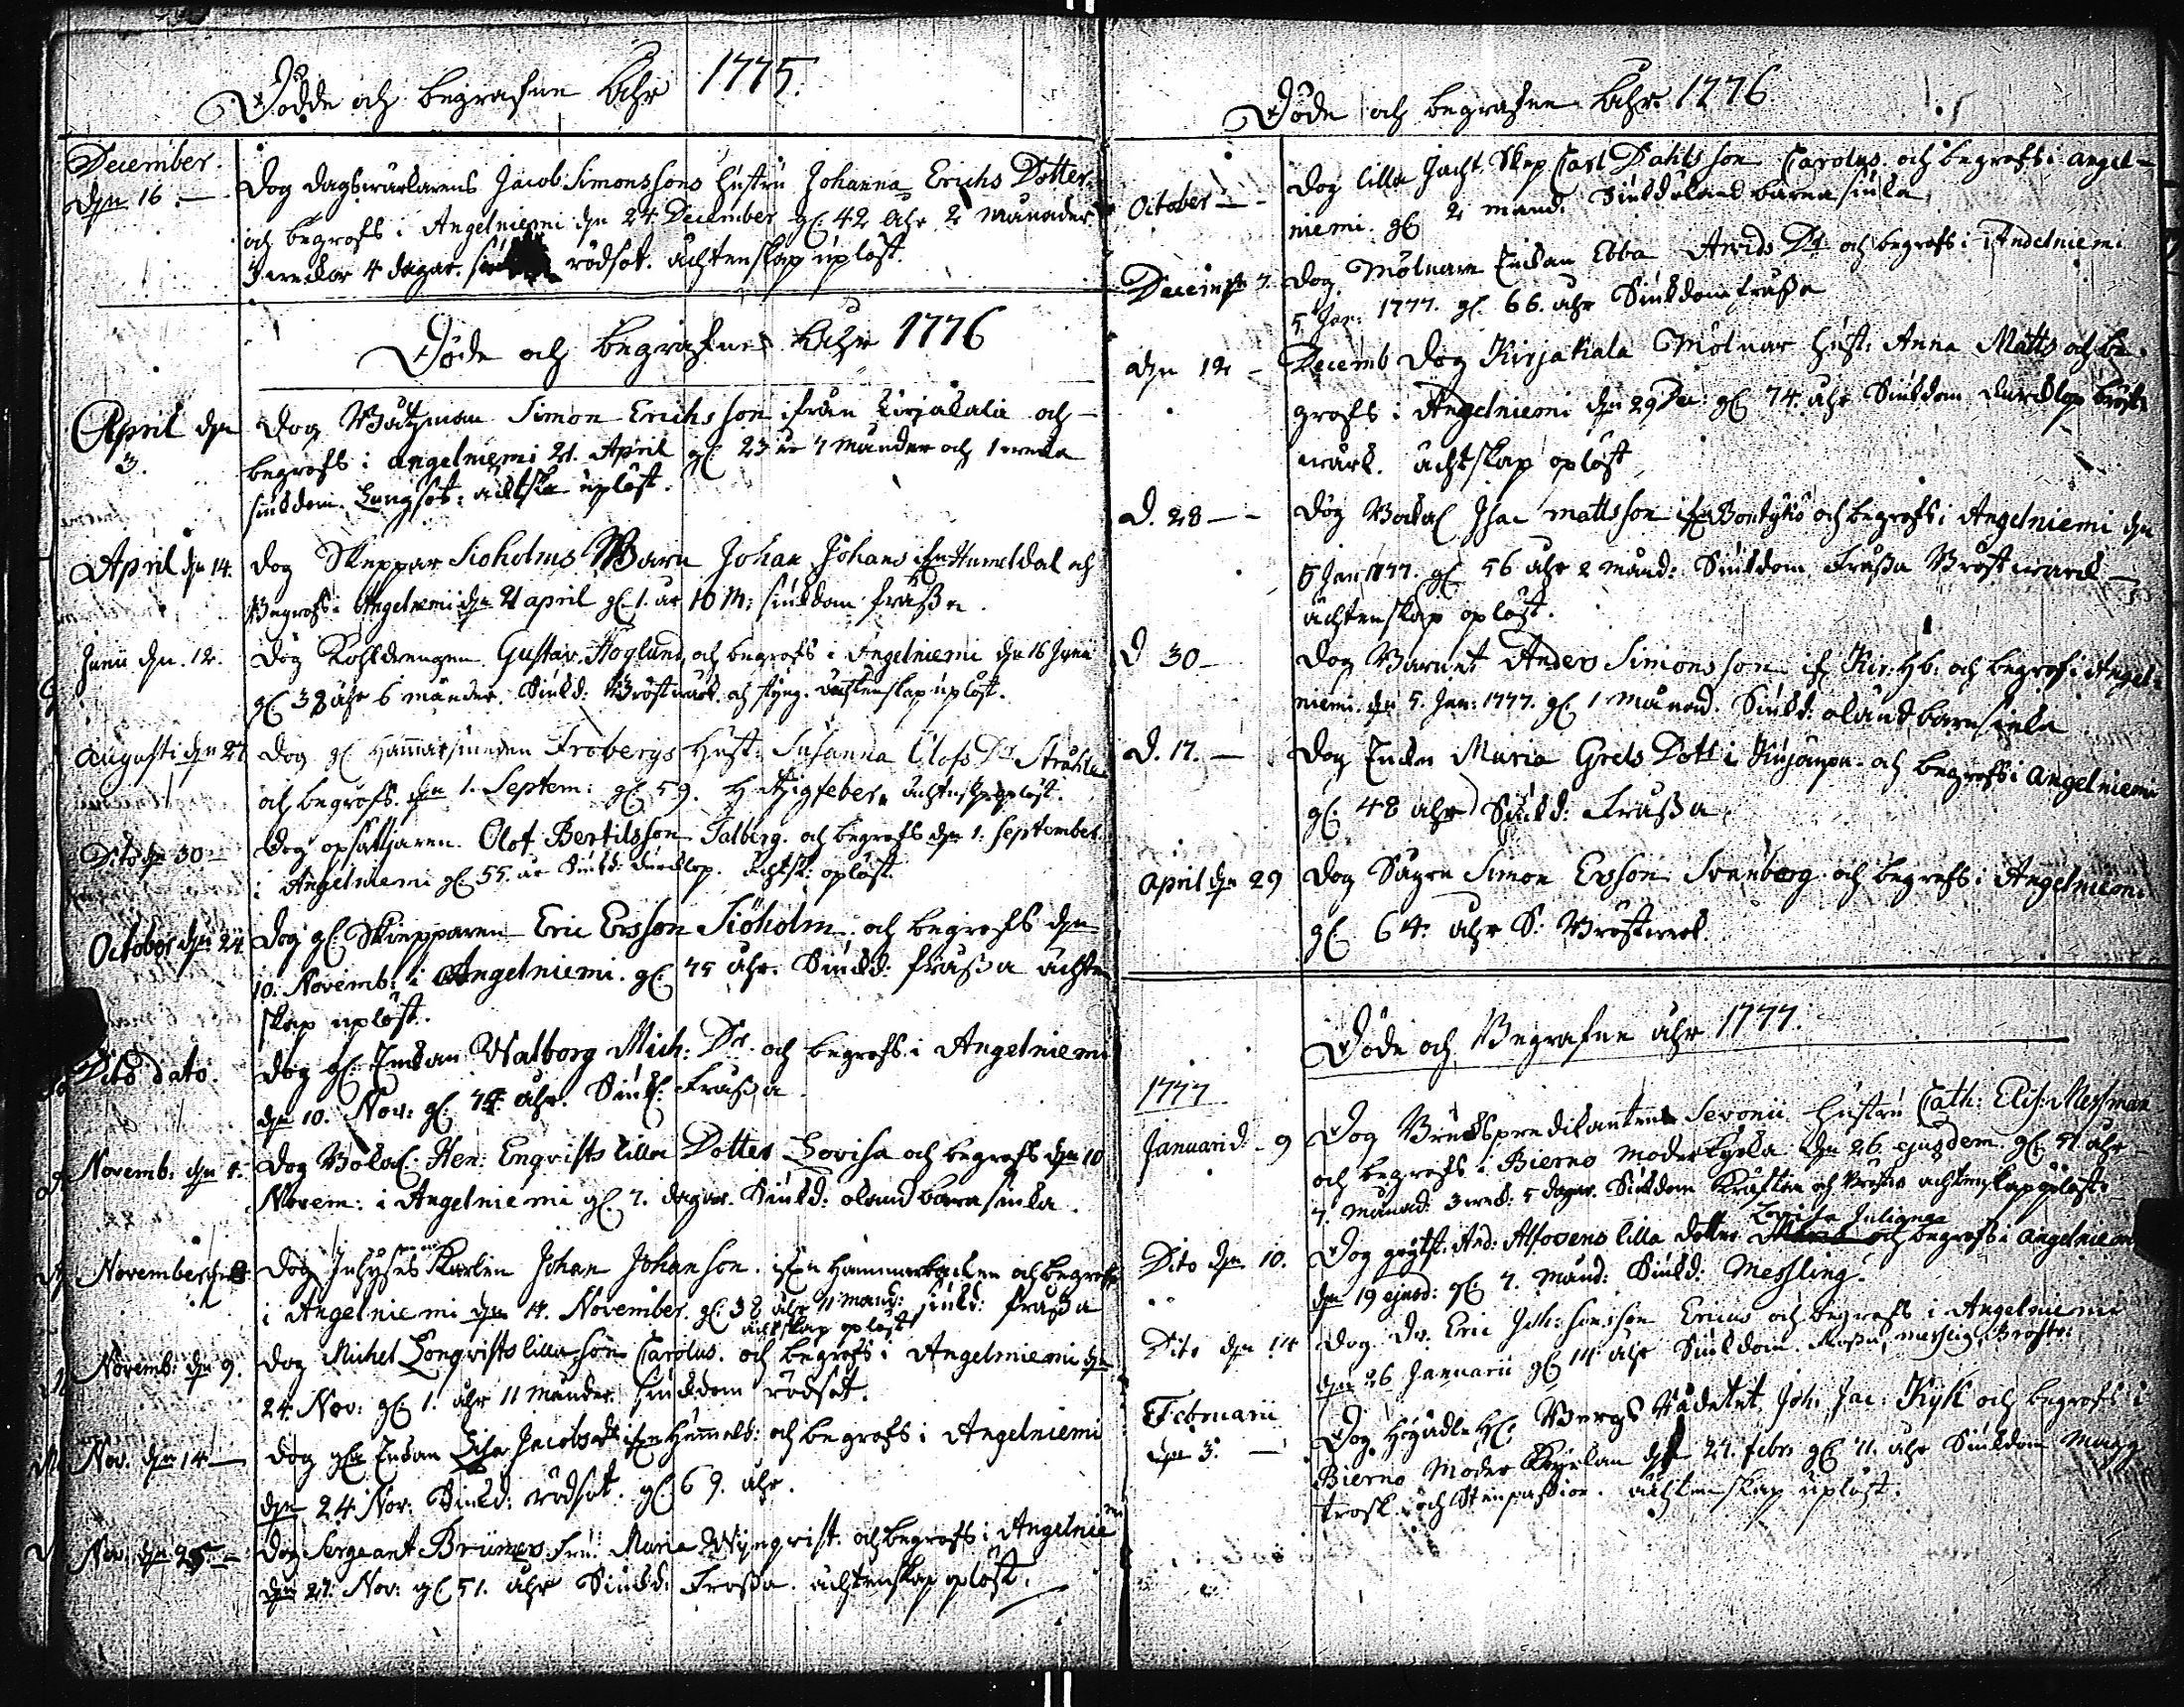 Döde och begrafne Åhr 1775.
December
den 16. Dog dagsverkarens Jacob Simonssons hustru Johanna Erichs Dotter
och begrofs i Angelniemi den 24 December gl: 42 åhr 2 månader
3 weckor 4 dagar. rödsot. ächtenskap uplöst.
Döde och begrafne Åhr 1776
April den 3. Dog Båtzman Simon Erichsson ifrån Kirjakala och
begrofs i Angelniemi 21. April gl: 23 år 7 månder och 1 weka
siukdom. Lungsot: ächtska uplöst.
April den 14. Dog Skeppar Sioholms Barn Johan Johans ifrn Humeldal och
Begrofs i Angelnemi den 21 april gl. 1. år 10 M: siukdom fråssa.
Junii den 12. Dog Kohldrengen Gustav Höglund och begrofs i Angelniemi den 16 Junii
gl: 38 åhr 6 månder. Siukd: Bröstwärk och styng. ächtenskap uplöst.
Augusti den 27 Dog gl: Hammarsmeden Frobergs Hust: Susanna Olofs Dr Stråhle
och begrofs. den 1. Septem: gl: 59. Hetzigfeber, ächtensk: uplöst.
Dito den 30 Dog opsättjaren Olof Bertilsson Talberg. och begrofs den 1. September
i Angelniemi gl: 55. år Siukd: durchlop. Ächtsk: oplöst.
October den 24 Dog gl: Skiepparen Eric Ersson Siöholm. och begrofs den
10. Novemb: i Angelniemi. gl: 75 åhr. Siukd: fråssa ächten
skap uplöst.
Dito dato. Dog gl: Enkan Walborg Mich: Dr. och begrofs i Angelniemi
den 10. Nov: gl: åhr. Siukd: Fråssa.
Novemb: den 4. Dog Hen: Enqvists lilla Dotter Lovisa och begrofs den 10
Novem: i Angelniemi gl: 7. dagar. Siukd: okand barnsiuka.
November den 8. Dog Inhyses Karlen Johan Johanson. ifrn Hammarbacken och begrofs
i Angelniemi den 14. November. gl: 38 åhr 11 månd: siukd: fråssa
ächtskap oplöst
Novemb: den 9. Dog Michel Lonqvists lilla son Carolus. och begrofs i Angelniemi den
24. Nov: gl: 1. åhr 11 månder. siukdom rödsot.
Nov. den 14 Dog gla Enkan Lisa Jacobsdr ifrn Humeld: och begrofs i Angelniemi
den 24. Nov: Siukd: rödsot. gl: 69. åhr.
Nov. den 25 Dog Sergeant Brumers Fru Maria Wynqvist. och begrofs i Angelnie
mi
den 27. Nov: gl: 51. åhr Siukd: Frossa. ächtenskap oplöst.
Döde och begrafne Åhr 1776
October Dog lilla Jacht Skep Carl Dahls son Carolus och begrofs i Angel-
niemi. gl: 2 månd. Siukd okand barnasiuka
Decem 7. Dog Mölnare Enkan Ebba Arvids Dr och begrofs i Andelniemi
5 Jan: 1777. gl. 66. åhr Siukdom fråssa
den 12 Decemb Dog Kirjakala Mölnar Hust: Anna Matts och be-
grofs i Angelniemi den 29 De: gl: 74. åhr Siukdom durchlop bröst
wärk. ächtskap oplöst
d. 28 Dog Isac mattsson och begrofs i Angelniemi den
5 Jan 1777. gl: 56 åhr 2 månd: Siukdom Fråssa Bröstwärck
ächtenskap oplöst.
d 30 Dog Barnet Anders Simonsson if Kir: Hb: och begrof i Angel-
niemi. den 5. Jan: 1777. gl: 1 månad. Siukd: okand barnsiuka
d. 17. Dog Enkn Maria Grels Dott i och begrofs i Angelniemi
gl: 48 åhr Siukd: Fråssa
April den 29 Dog Simon Ersson Svanberg och begrofs i Angelniemi
gl: 64. åhr S: Bröstwerk.
Döde och Begrafne åhr 1777.
1777
Januari d. 9 Dog Brukspredikantens Sevonii hustru Cath: Elis: Messman
och begrofs i Bierno moderkyrka den 26. ejusdem. gl: 51 åhr
7. månad: 3 weck: 5 dagar. Siukdom Kräftan och Bröst ächtenskap oplöst.
Lovisa Juliana
Dito den 10. Dog And: Alforens lilla dotter och begrofs i Angelniem
den 19 ejusd: gl: 7. månd: Siukd: Messling.
Dito den 14 Dog Dr. Eric son Ericus och begrofs i Angelniemi
den 26 Januarii gl: 14 åhr Siukdom. Frossa, Bröstw:
Februarii
den 3. Dog Högädle Hr Bergs Rådet Joh: Jac: Kijk och begrofs i
Bierno Moder Kyrkan den 27. febr: gl: 71. åhr Siukdom Mag
trosk och Stenpassion. ächtenskap uplöst.